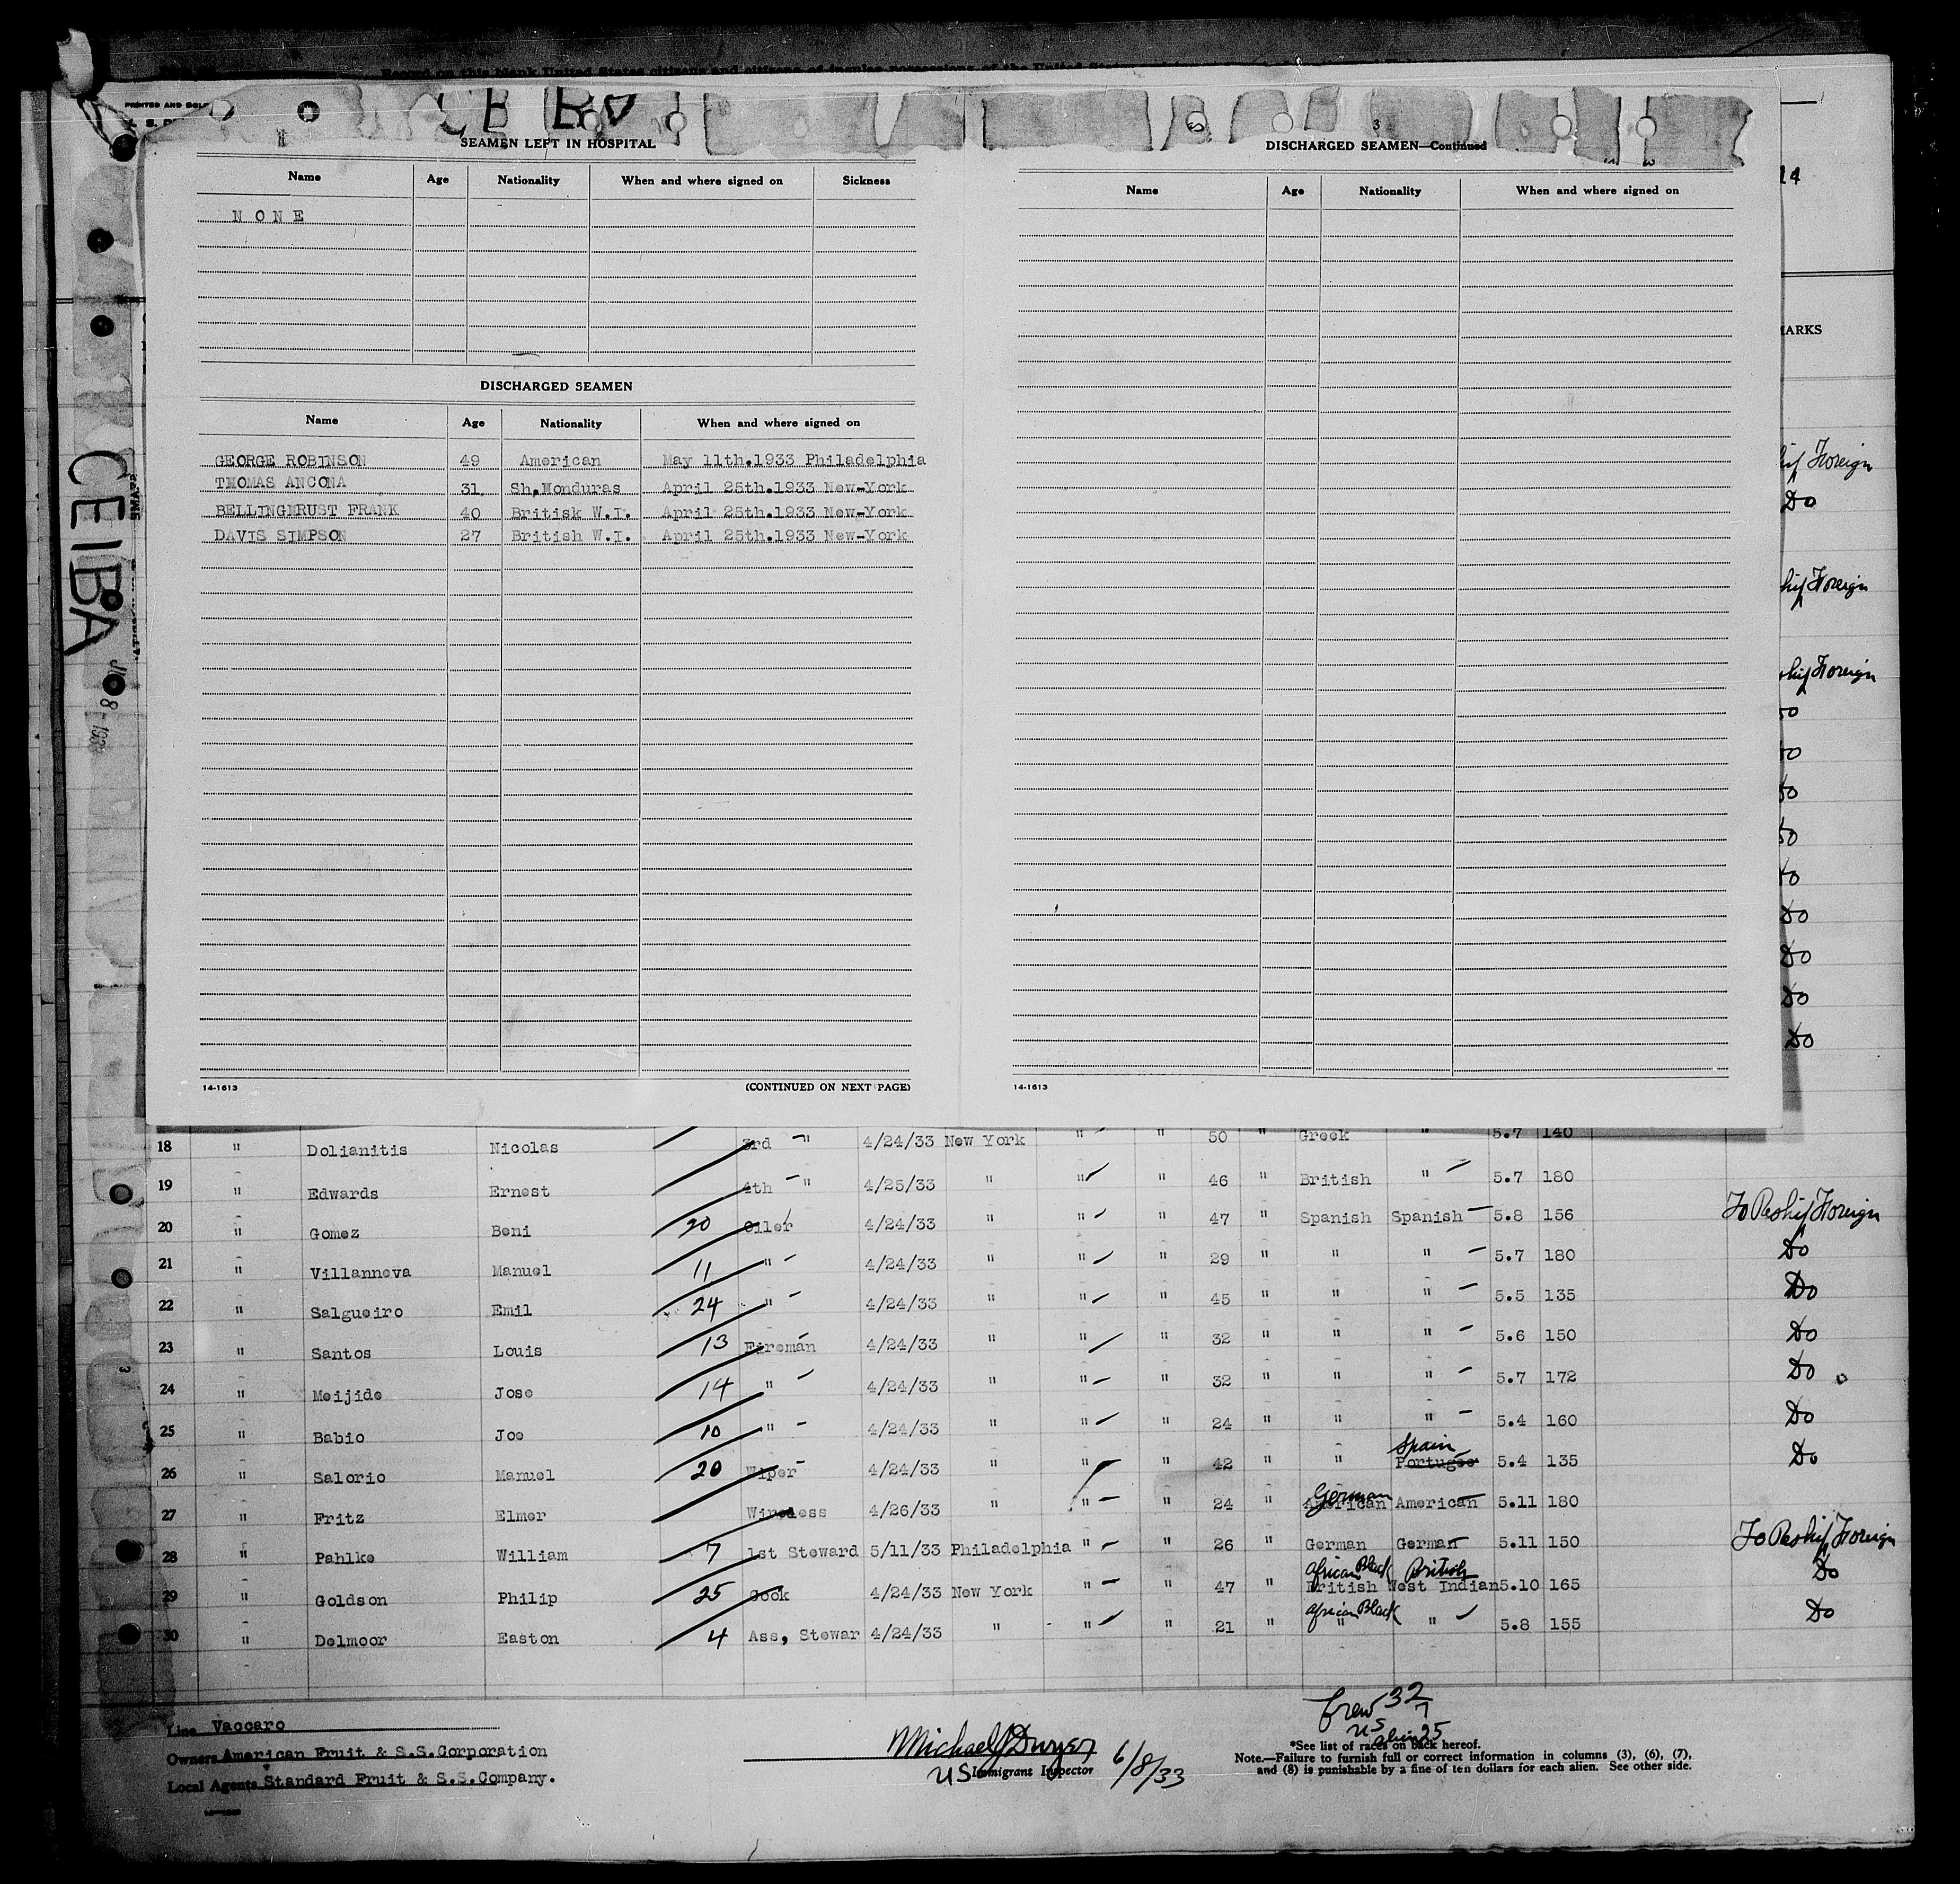 Record on this blank United States citizens and citizens of insular possessions of the United
PRINTED AND SOLD
CEIBA
SEAMEN LEFT IN HOSPITAL
Name Age Nationality When and where signed on Sickness
N O N E
DISCHARGED SEAMEN
Name Age Nationality When and where signed on
GEORGE ROBINSON 49 American May 11th.1933 Philadelphia
THOMAS ANCONA 31 Sh.Honduras April 25th.1933 New-York
BELLINGHRUST FRANK 40 Britisk W.I. April 25th.1933 New-York
DAVIS SIMPSON 27 British W.I. April 25th.1933 New-York
14-1613 (CONTINUED ON NEXT PAGE)
3
DISCHARGED SEAMEN—Continued
Name Age Nationality When and where signed on
14-1613
14
MARKS
ship Foreign
Do
ship Foreign
ship Foreign
Do
Do
Do
Do
Do
Do
Do
Do
Do
CEIBA
8 - 193
18 " Dolianitis Nicolas 3rd " 4/24/33 New York " " 50 " Greek " 5.7 140
19 " Edwards Ernest 4th " 4/25/33 " " " 46 " British " 5.7 180
20 " Gomez Beni 20 Oiler 4/24/33 " " " 47 " Spanish Spanish 5.8 156 To Reship Foreign
21 " Villanneva Manuel 11 " 4/24/33 " " " 29 " " " 5.7 180 Do
22 " Salgueiro Emil 24 " 4/24/33 " " " 45 " " " 5.5 135 Do
23 " Santos Louis 13 Fireman 4/24/33 " " " 32 " " " 5.6 150 Do
24 " Meijide Jose 14 " 4/24/33 " " " 32 " " " 5.7 172 Do
25 " Babio Joe 10 " 4/24/33 " " " 24 " " " 5.4 160 Do
Spain
26 " Salorio Manuel 20 Wiper 4/24/33 " " " 42 " " Portugee 5.4 135 Do
German
27 " Fritz Elmer Wireless 4/26/33 " " " 24 " American American 5.11 180
28 " Pahlke William 7 1st Steward 5/11/33 Philadelphia " " 26 " German German 5.11 150 To Reship Foreign
African Black British
29 " Goldson Philip 25 Cook 4/24/33 New York " " 47 " British West Indian 5.10 165 Do
African Black
30 " Delmoor Easton 4 Ass, Stewar 4/24/33 " " " 21 " " " 5.8 155 Do
Crew 32
US 7
alien 25
Line Vaccaro
Owners American Fruit & S.S.Corporation
Local Agents Standard Fruit & S.S.Company.
Michael J Dwyer 6/8/33
US Immigrant Inspector
*See list of races on back hereof.
Note.—Failure to furnish full or correct information in columns (3), (6), (7),
and (8) is punishable by a fine of ten dollars for each alien. See other side.